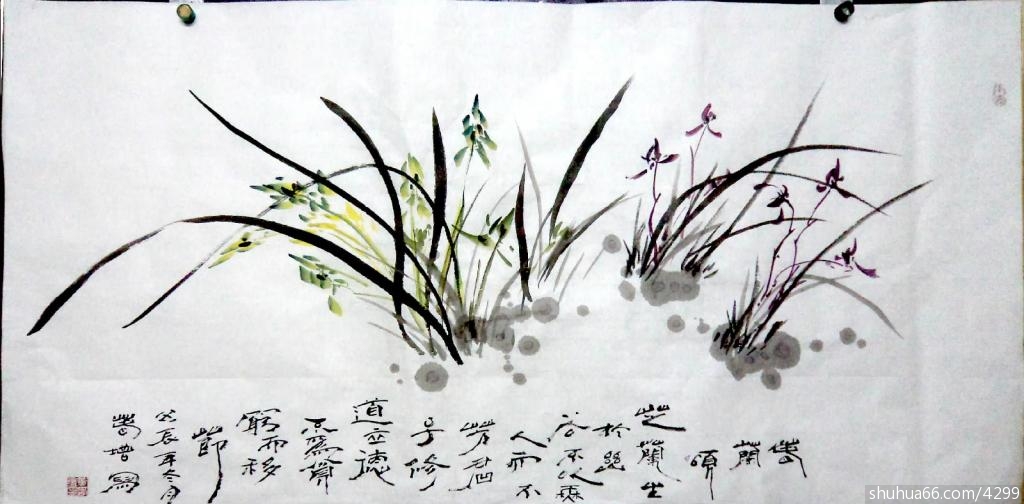 蘭
頌
芝蘭生
於幽
谷不以無
人而不
芳君
子修
道立德
不為貧
窮而移
節
壬辰年冬月
寫
shuhua66.com/4299